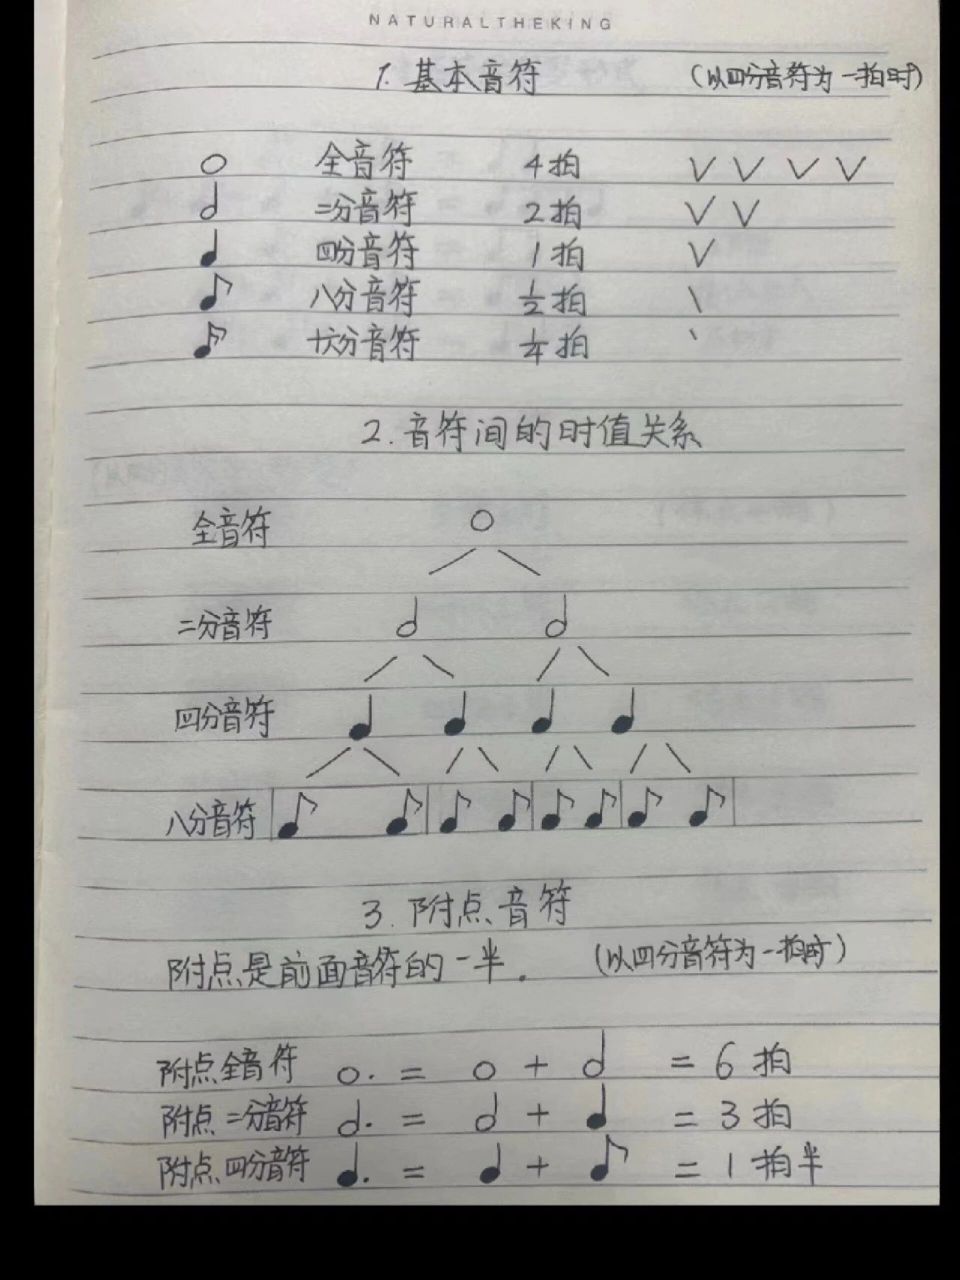 NATURALTHEKING
1. 基本音符 (以四分音符为一拍时)
全音符 4拍 V V V V
二分音符 2拍 V V
四分音符 1拍 V
八分音符 1/2拍 \
十六分音符 1/4拍 、
2. 音符间的时值关系
全音符
二分音符
四分音符
八分音符
3. 附点音符
附点是前面音符的一半. (以四分音符为一拍时)
附点全音符 𝅝. = 𝅝 + 𝅗𝅥 = 6拍
附点二分音符 𝅗𝅥. = 𝅗𝅥 + ♩ = 3拍
附点四分音符 ♩. = ♩ + ♪ = 1拍半